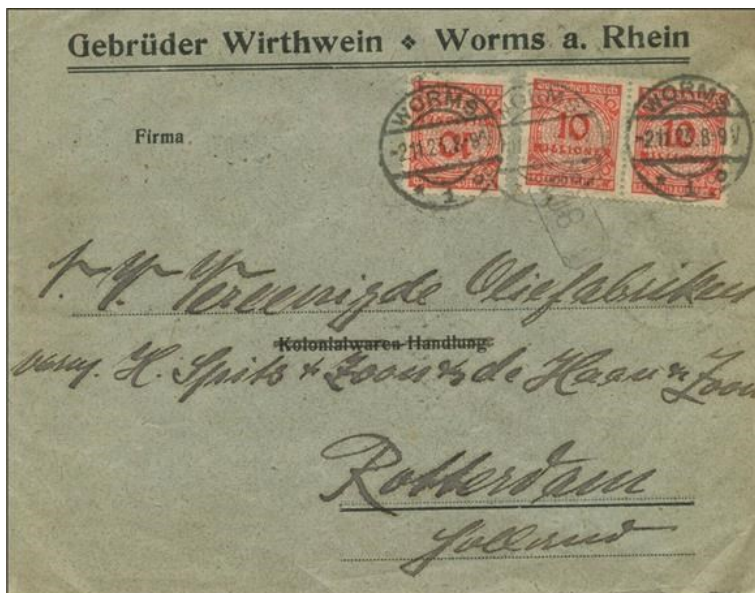 Gebrüder Wirthwein ❖ Worms a. Rhein
Firma
WORMS
-2.11.23.8-9V
* 1 o
10
Deutsches Reich
10
MILLIONEN
WORMS
-2.11.23.8-9V
* 1 o
10
Vereenigde Oliefabriken
Kolonialwaren-Handlung
H. Spits & Zoon & de Haan & Zoon
Rotterdam
Holland